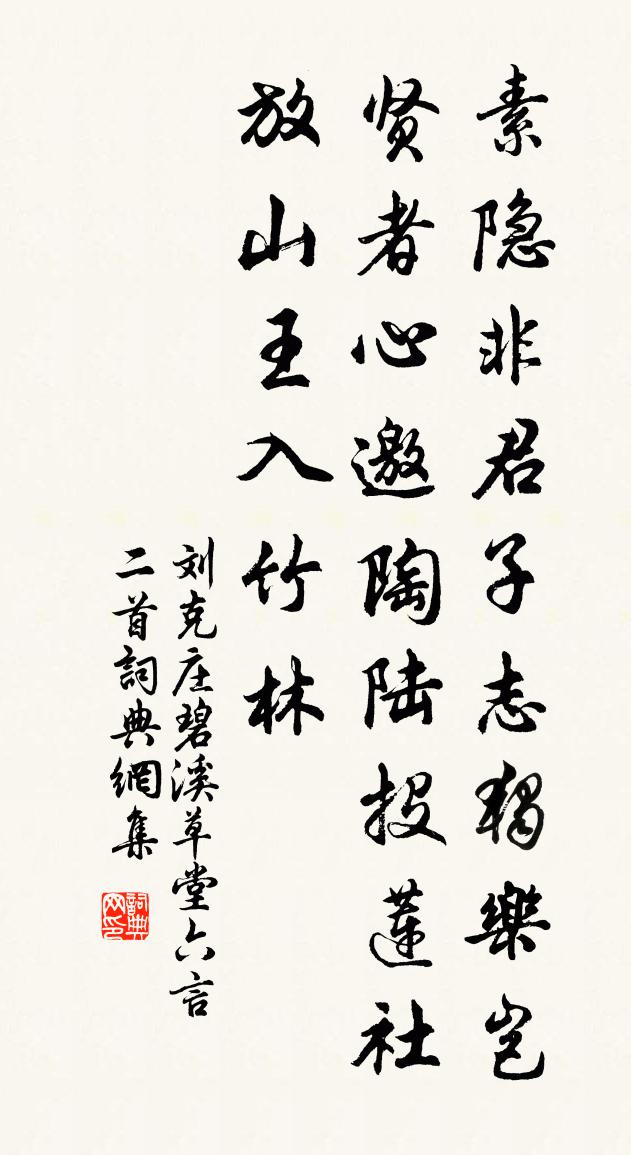 素隐非君子志獨樂岂
贤者心邀陶陆投蓮社
放山王入竹林
刘克庄碧溪草堂六言
二首詞典網集
詞典
网印